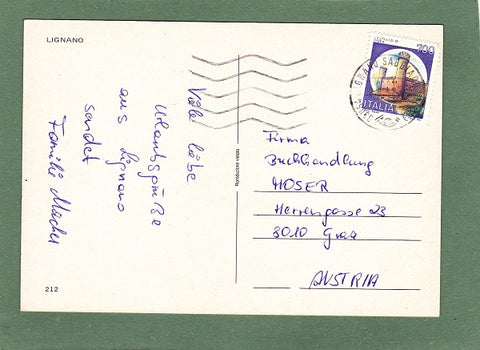 LIGNANO
Viele liebe
Urlaubsgrüße
aus Lignano
sendet
Familie Macher
212
Riproduzione vietata
700
ITALIA
Firma
Buchhandlung
MOSER
Herrengasse 23
8010 Graz
AUSTRIA